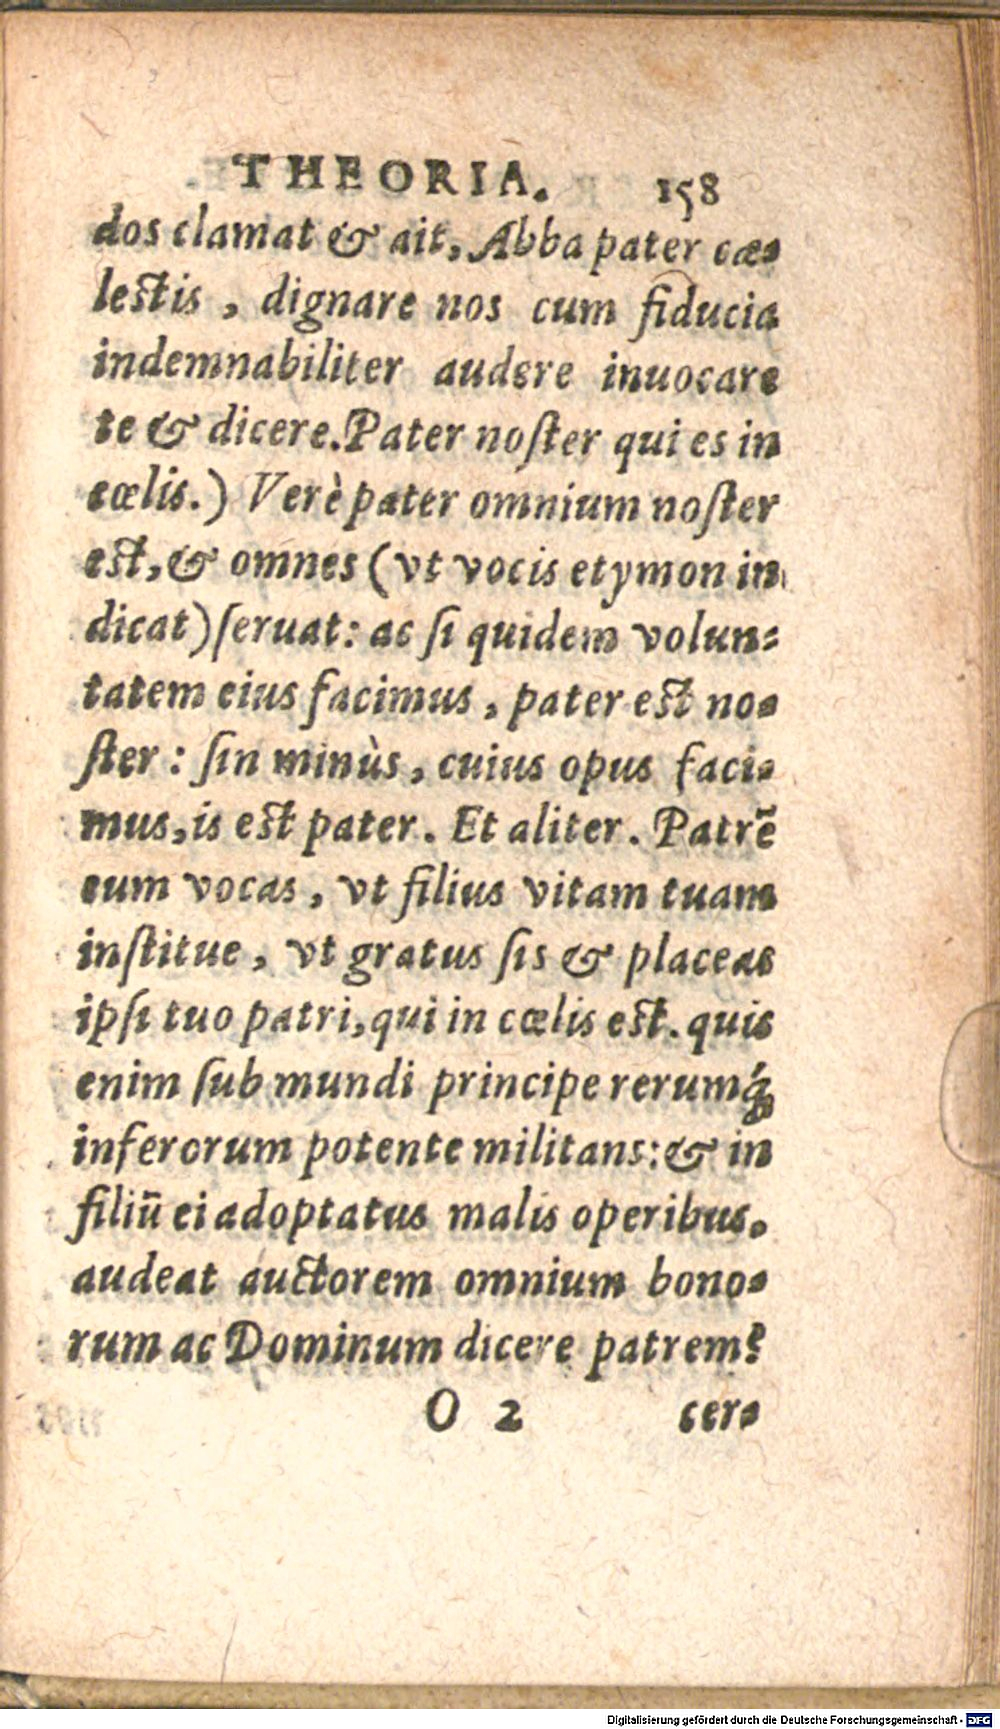 THEORIA. 158
dos clamat & ait, Abba pater cæ-
lestis, dignare nos cum fiducia
indemnabiliter audere inuocare
te & dicere. Pater noſter qui es in
cœlis.) Verè pater omnium noſter
est, & omnes (vt vocis etymon in
dicat) ſeruat: ac ſi quidem volun-
tatem eius facimus, pater est no-
ſter: ſin minùs, cuius opus faci-
mus, is est pater. Et aliter. Patrē
eum vocas, vt filius vitam tuam
inſtitue, vt gratus ſis & placeas
ipſi tuo patri, qui in cœlis est. quis
enim ſub mundi principe rerumq́;
inferorum potente militans: & in
filiū ei adoptatus malis operibus.
audeat auctorem omnium bono-
rum ac Dominum dicere patrem?
O 2 cer-
Digitalisierung gefördert durch die Deutsche Forschungsgemeinschaft - DFG